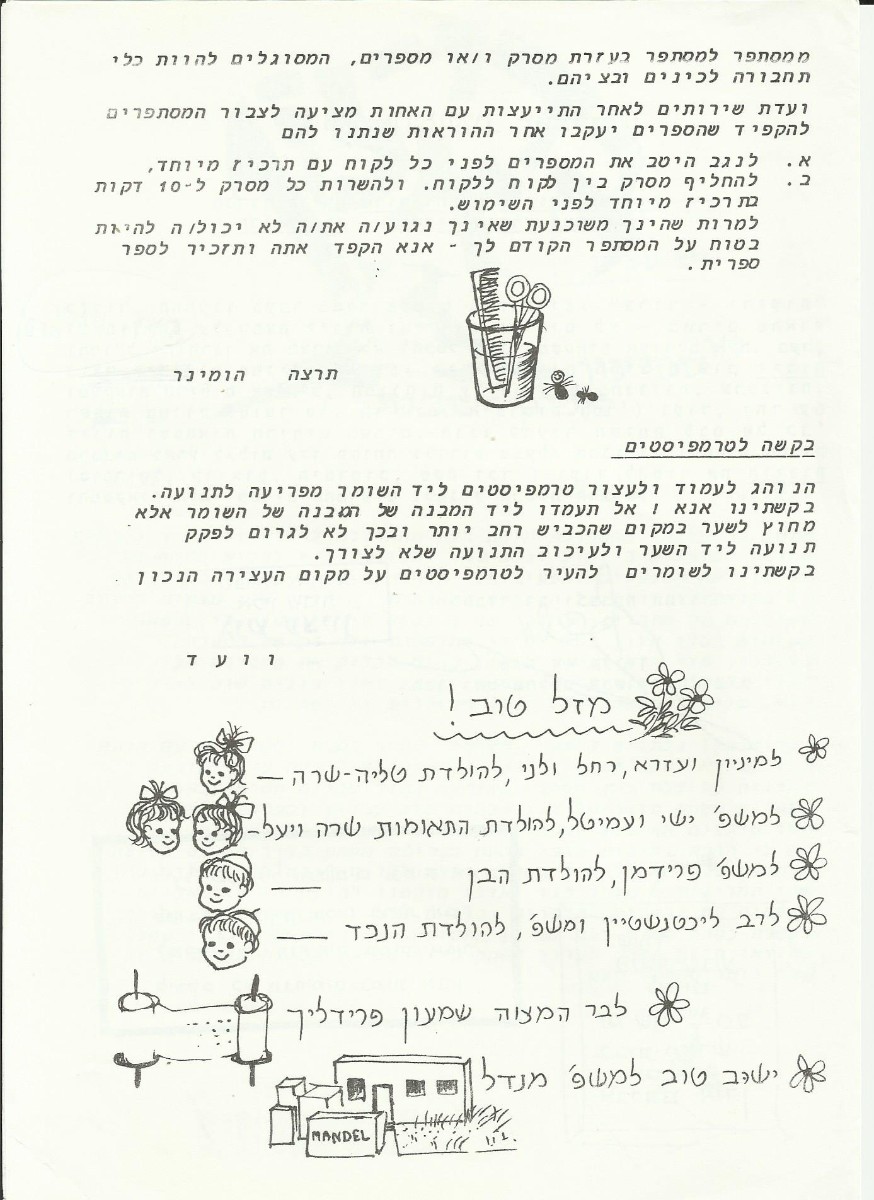 ממסתפר למסתפר בעזרת מסרק ו/או מספרים, המסוגלים להוות כלי
תחבורה לכינים ובציהם.
ועדת שירותים לאחר התייעצות עם האחות מציעה לצבור המסתפרים
להקפיד שהספרים יעקבו אחר ההוראות שנתנו להם
א. לנגב היטב את המספרים לפני כל לקוח עם תרכיז מיוחד,
ב. להחליף מסרק בין לקוח ללקוח. ולהשרות כל מסרק ל-10 דקות
בתרכיז מיוחד לפני השימוש.
למרות שהינך משוכנעת שאינך נגוע/ה את/ה לא יכול/ה להיות
בטוח על המסתפר הקודם לך - אנא הקפד אתה ותזכיר לספר
ספרית.
תרצה הומינר
בקשה לטרמפיסטים
הנוהג לעמוד ולעצור טרמפיסטים ליד השומר מפריעה לתנועה.
בקשתינו אנא ! אל תעמדו ליד המבנה של המבנה של השומר אלא
מחוץ לשער במקום שהכביש רחב יותר ובכך לא לגרום לפקק
תנועה ליד השער ולעיכוב התנועה שלא לצורך.
בקשתינו לשומרים להעיר לטרמפיסטים על מקום העצירה הנכון
ו ו ע ד
מזל טוב!
למיניין ועדרא, רחל ולני, להולדת טליה-שרה —
למשפ' ישי ועמיטל, להולדת התאומות שרה ויעל-
למשפ' פרידמן, להולדת הבן —
לרב ליכטנשטיין ומשפ', להולדת הנכד —
לבר המצוה שמעון פרידליך
ישוב טוב למשפ' מנדל
MANDEL